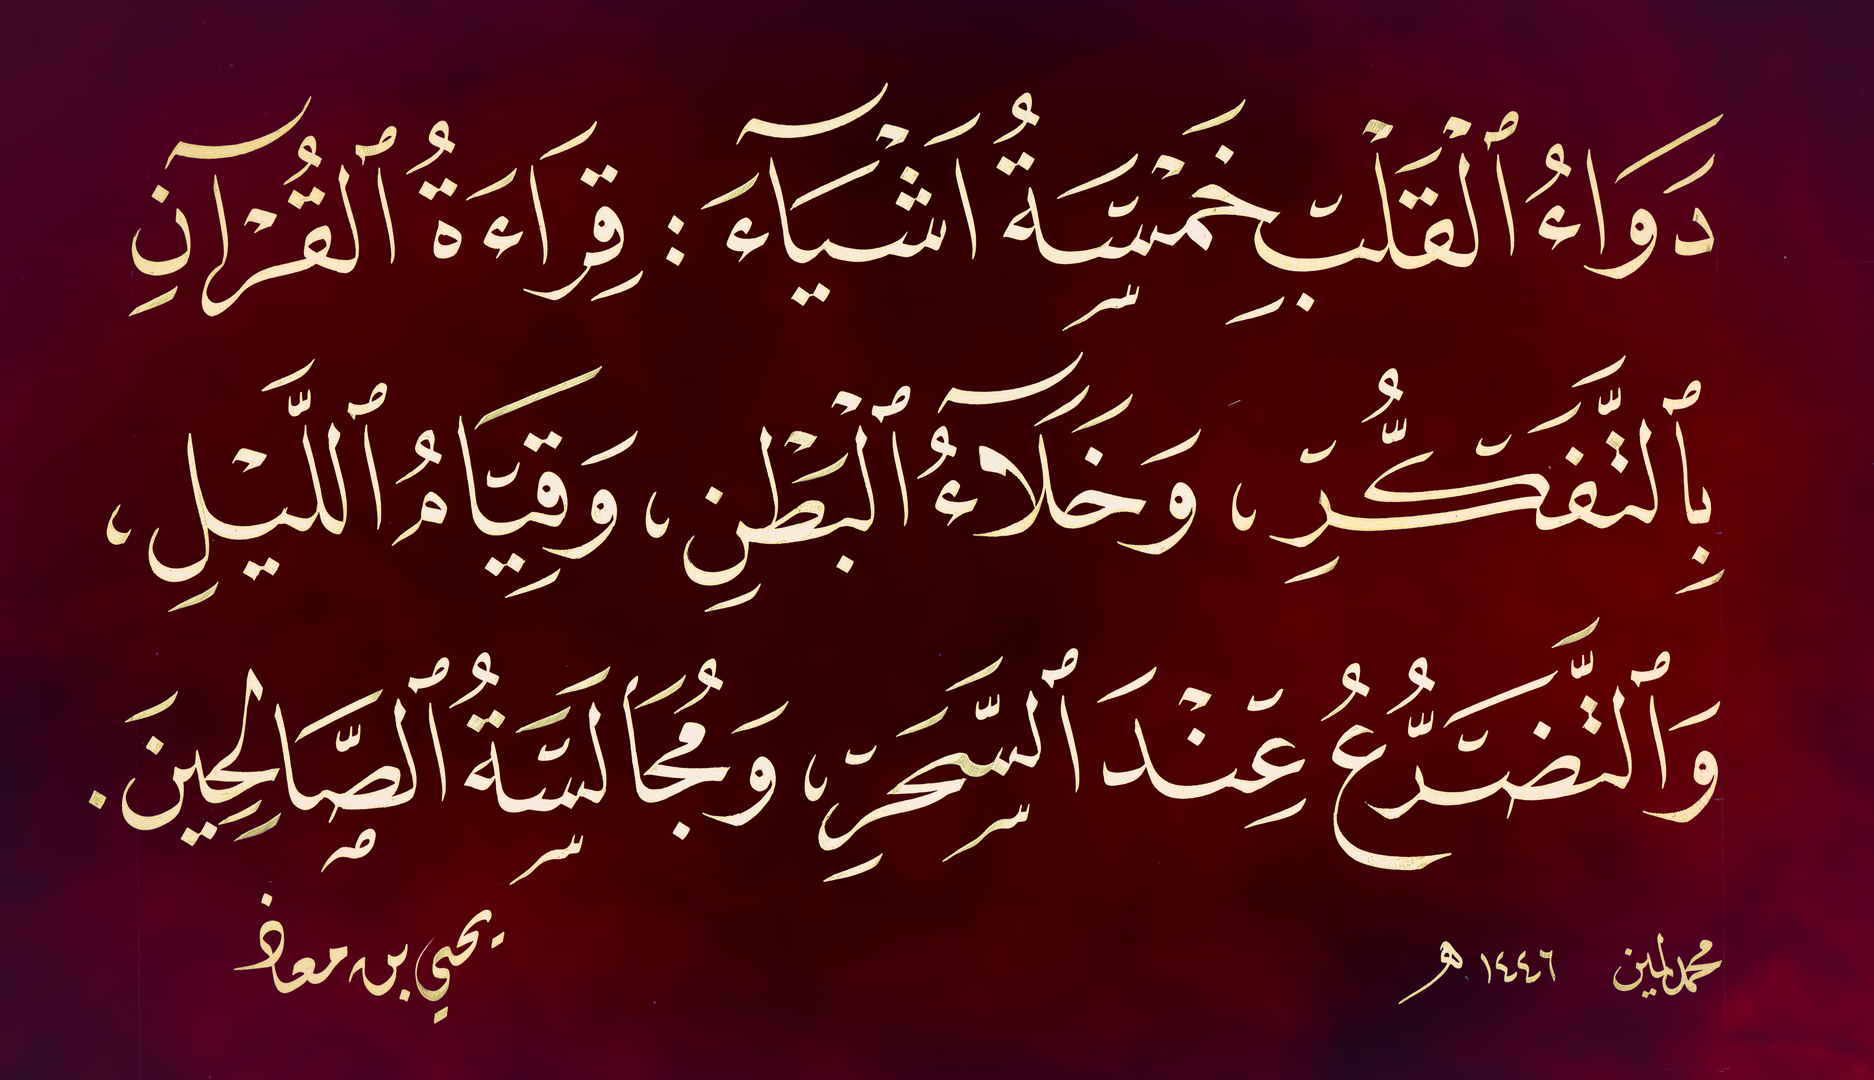 دَوَاءُ ٱلْقَلْبِ خَمْسَةُ اَشْيَآءَ : قِرَاءَةُ ٱلْقُرْآنِ
بِٱلتَّفَكُّرِ ، وَخَلَآءُ ٱلْبَطْنِ ، وَقِيَامُ ٱللَّيْلِ ،
وَٱلتَّضَرُّعُ عِنْدَ ٱلسَّحَرِ ، وَمُجَالَسَةُ ٱلصَّالِحِينَ .
يحيي بن معاذ
محمد لمين ١٤٤٦ هـ